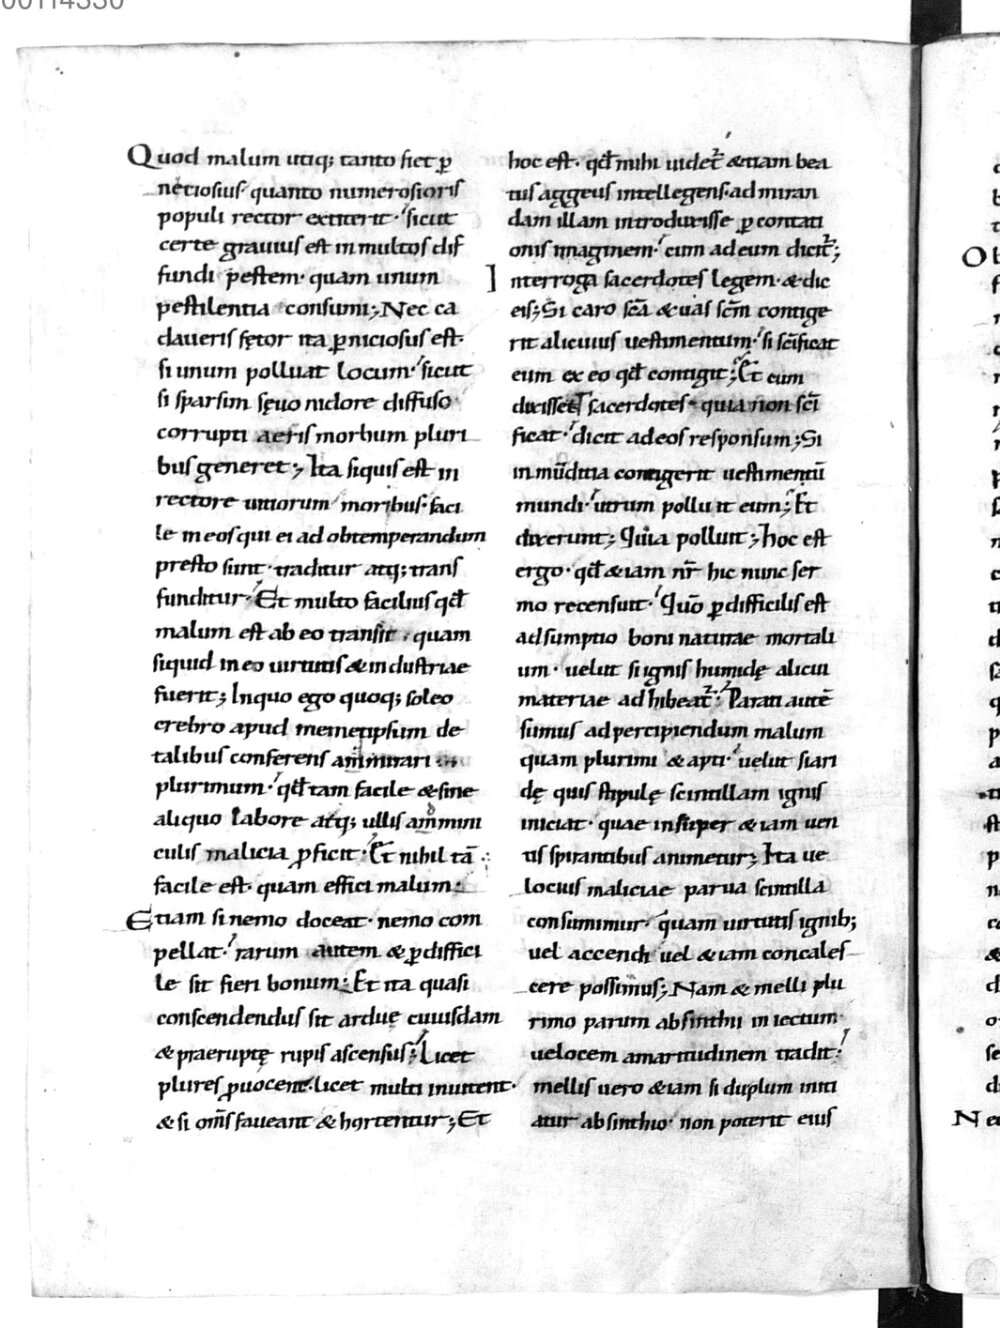 00114330
Quod malum utiq; tanto fiet p̲
netiosius quanto numerosioris
populi rector extiterit· sicut
certe grauius est in multos dif
fundi pestem· quam unum
pestilentia consumi; Nec ca
daueris fętor ita p̲niciosus est·
si unum polluat locum· sicut
si sparsim sęuo nidore diffuso
corrupti aeris morbum pluri
bus generet; Ita siquis est in
rectore uitiorum moribus· faci
le in eos qui ei ad obtemperandum
presto sunt· traditur atq; trans
funditur· Et multo facilius qđ
malum est ab eo transit· quam
siquid in eo uirtutis & industriae
fuerit; Inquo ego quoq; soleo
crebro apud memetipsum de
talibus conferens ammirari
plurimum· qđ tam facile & sine
aliquo labore atq; ullis ammini
culis malicia p̲ficit· Et nihil tā
facile est· quam effici malum·
Etiam si nemo doceat· nemo com
pellat· rarum autem & p̲diffici
le sit fieri bonum; Et ita quasi
conscendendus sit ardue cuiusdam
& praeruptę rupis ascensus; Licet
plures p̲uocent· licet multi inuitent·
& si om̄s faueant & hortentur; Et
hoc est· qđ mihi uidet̃ & iam bea
tus aggeus intellegens· ad miran
dam illam introduxisse p̲ contati
onis imaginem· cum ad eum dicit̃;
Interroga sacerdotes legem· & dic
eis; Si caro sc̄a & uas sc̄m contige
rit alicuius uestimentum· si sc̄ificat
eum ex eo qđ contigit; Et cum
dixissent sacerdotes· quia non sc̄i
ficat· dicit ad eos responsum; Si
in mūditia contigerit uestimentū
mundi· utrum polluit eum; Et
dixerunt; Quia polluit; hoc est
ergo· qđ & iam nr̄ hic nunc ser
mo recensuit· Quō p̲difficilis est
adsumptio boni naturae mortali
um· uelut si ignis humidę alicui
materiae adhibeat̃· Parati autē
sumus ad percipiendum malum
quam plurimi & apti· uelut si ari
dę quis stipulę scintillam ignis
iniciat· quae insuper & iam uen
tis spirantibus animetur; Ita ue
locius maliciae parua scintilla
consumimur· quam uirtutis ignib;
uel accendi uel & iam concales
cere possimus; Nam & melli plu
rimo parum absinthii iniectum
uelocem amaritudinem tradit·
mellis uero & iam si duplum inti
atur absinthio· non poterit eius